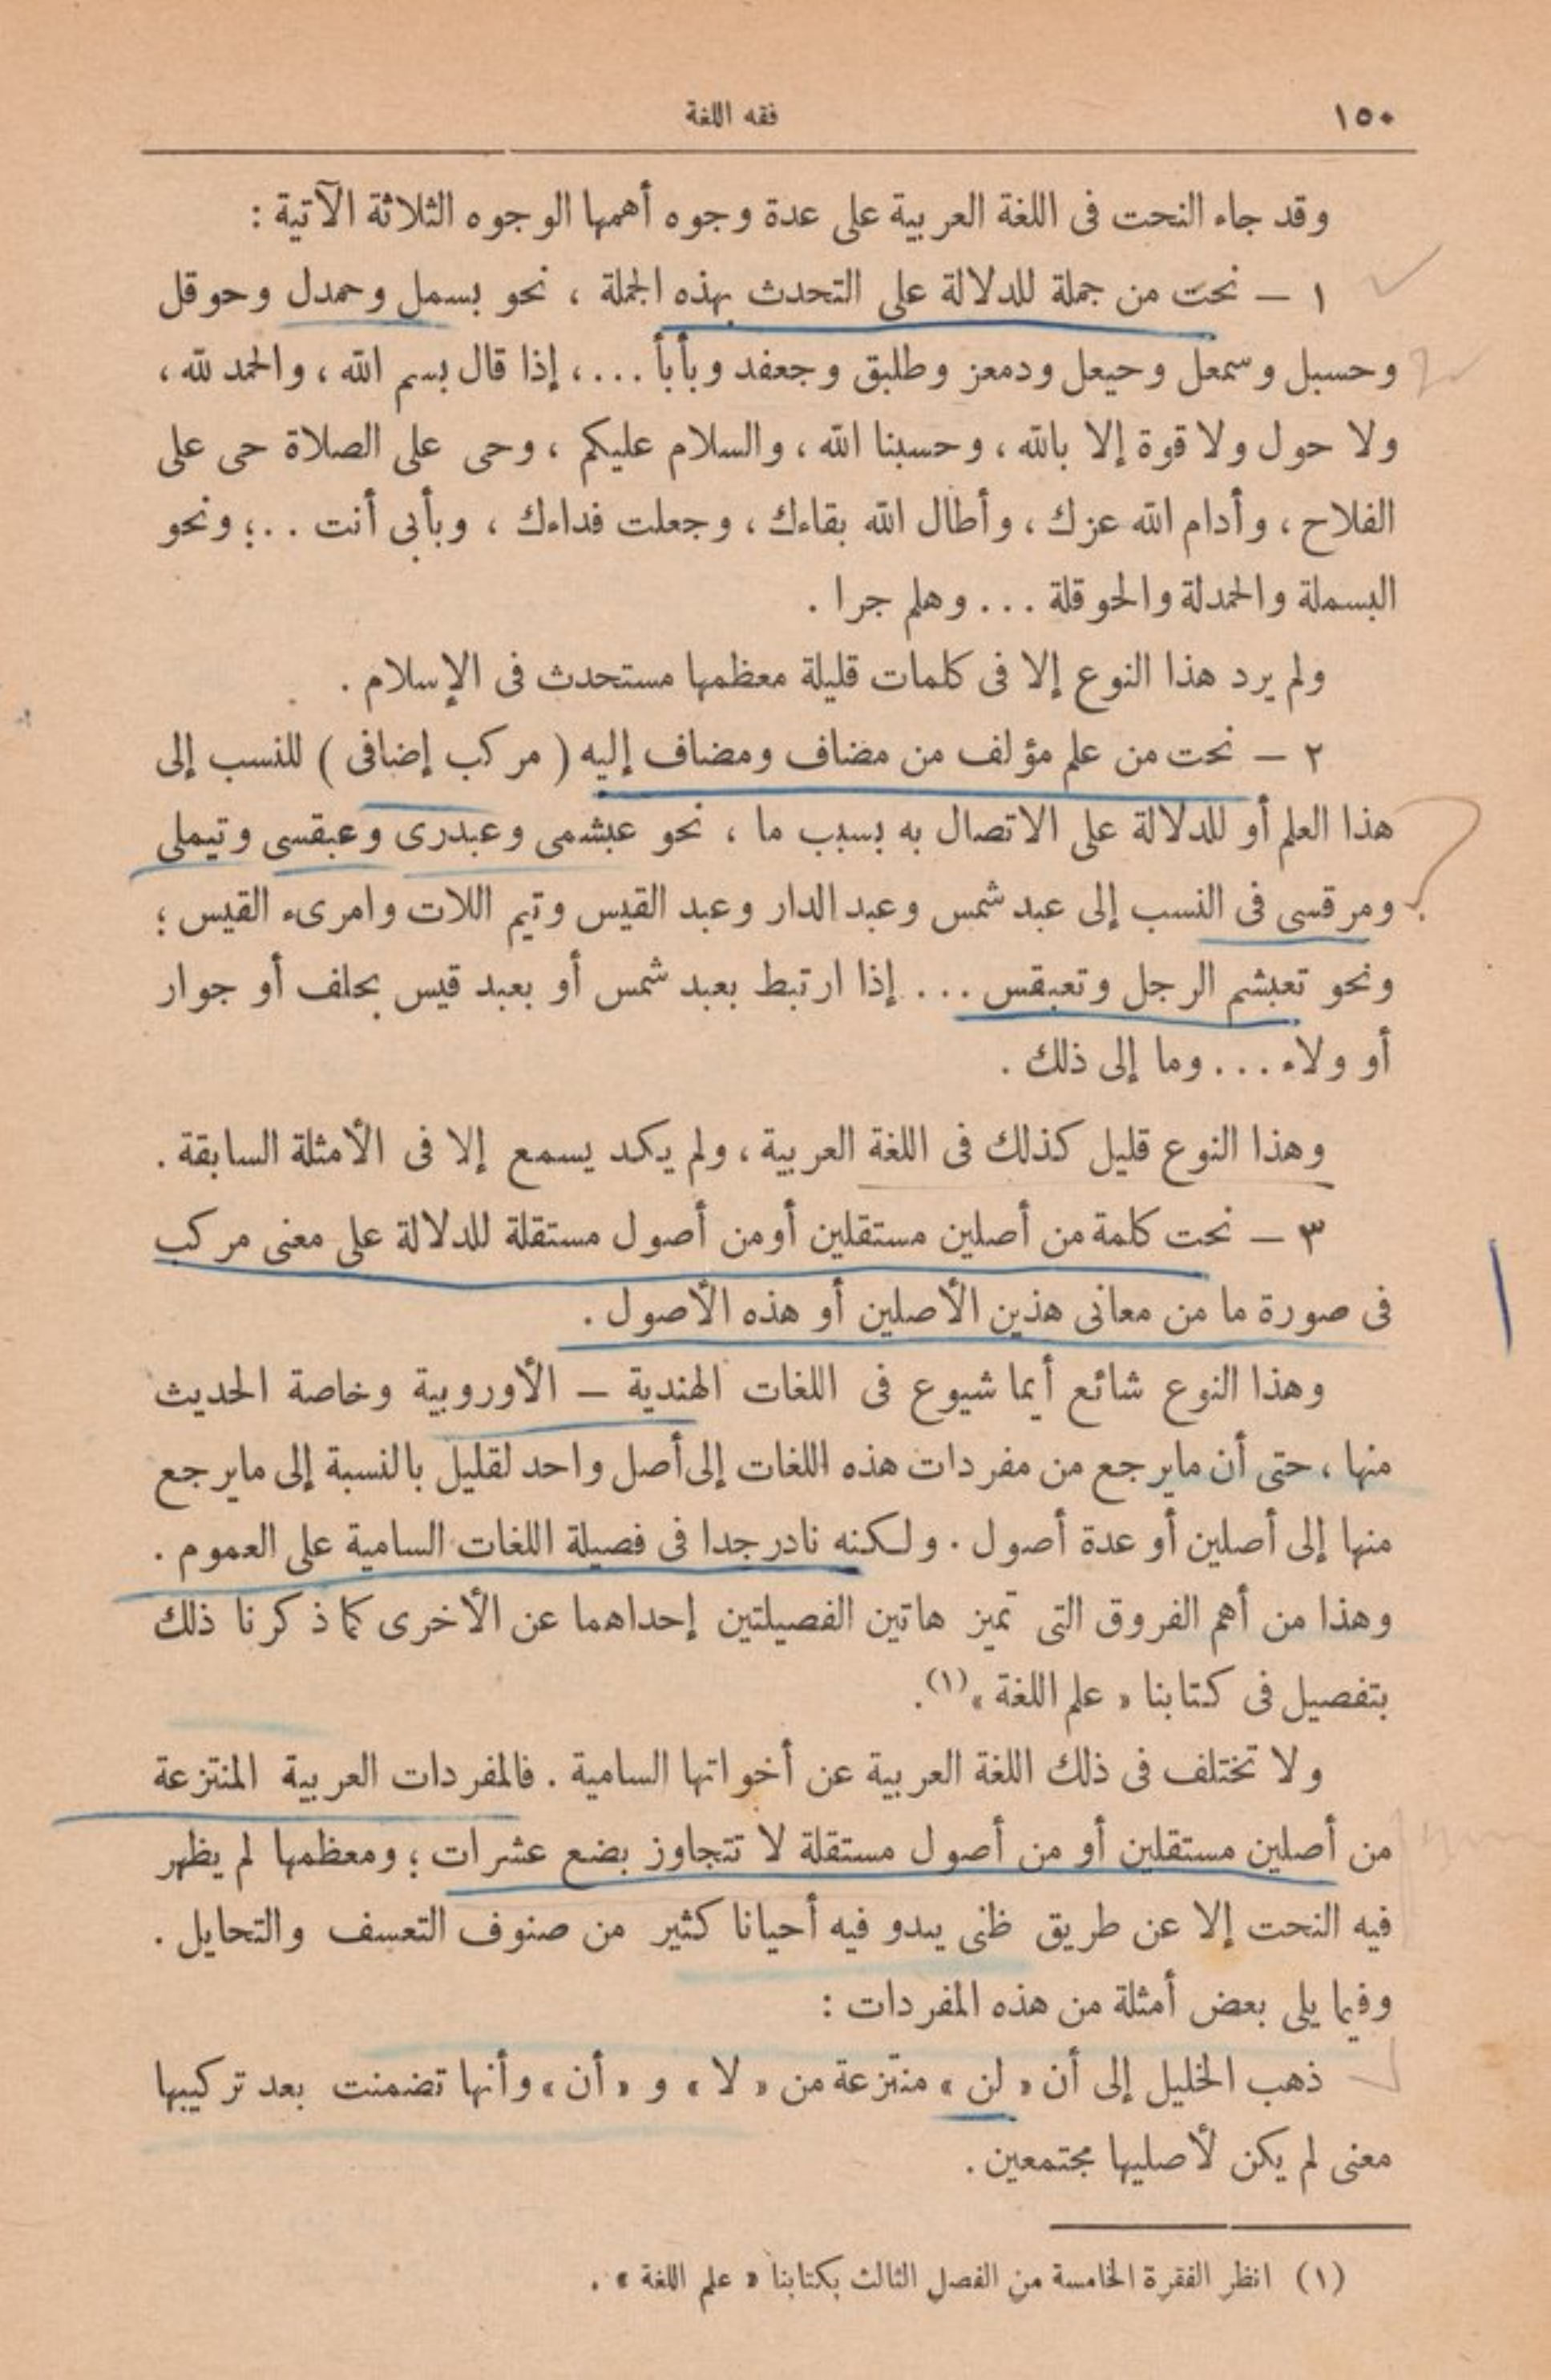 ١٥٠
فقه اللغة
وقد جاء النحت فى اللغة العربية على عدة وجوه أهمها الوجوه الثلاثة الآتية :
١ – نحت من جملة للدلالة على التحدث بهذه الجملة ، نحو بسمل وحمدل وحوقل
وحسبل وسمعل وحيعل ودمعز وطلبق وجعفد وبأبأ ... ، إذا قال بسم الله ، والحمد لله ،
ولا حول ولا قوة إلا بالله ، وحسبنا الله ، والسلام عليكم ، وحى على الصلاة حى على
الفلاح ، وأدام الله عزك ، وأطال الله بقاءك ، وجعلت فداءك ، وبأبى أنت .. ؛ ونحو
البسملة والحمدلة والحوقلة ... وهلم جرا .
ولم يرد هذا النوع إلا فى كلمات قليلة معظمها مستحدث فى الإسلام .
٢ – نحت من علم مؤلف من مضاف ومضاف إليه ( مركب إضافى ) للنسب إلى
هذا العلم أو للدلالة على الاتصال به بسبب ما ، نحو عبشمى وعبدرى وعبقسى وتيملى
ومرقسى فى النسب إلى عبد شمس وعبد الدار وعبد القيس وتيم اللات وامرىء القيس ؛
ونحو تعبشم الرجل وتعبقس ... إذا ارتبط بعبد شمس أو بعبد قيس بحلف أو جوار
أو ولاء ... وما إلى ذلك .
وهذا النوع قليل كذلك فى اللغة العربية ، ولم يكد يسمع إلا فى الأمثلة السابقة .
٣ – نحت كلمة من أصلين مستقلين أو من أصول مستقلة للدلالة على معنى مركب
فى صورة ما من معانى هذين الأصلين أو هذه الأصول .
وهذا النوع شائع أيما شيوع فى اللغات الهندية – الأوروبية وخاصة الحديث
منها ، حتى أن مايرجع من مفردات هذه اللغات إلى أصل واحد لقليل بالنسبة إلى مايرجع
منها إلى أصلين أو عدة أصول . ولكنه نادر جدا فى فصيلة اللغات السامية على العموم .
وهذا من أهم الفروق التى تميز هاتين الفصيلتين إحداهما عن الأخرى كما ذكرنا ذلك
بتفصيل فى كتابنا « علم اللغة »(١).
ولا تختلف فى ذلك اللغة العربية عن أخواتها السامية . فالمفردات العربية المنتزعة
من أصلين مستقلين أو من أصول مستقلة لا تتجاوز بضع عشرات ؛ ومعظمها لم يظهر
فيه النحت إلا عن طريق ظنى يبدو فيه أحيانا كثير من صنوف التعسف والتحايل .
وفيما يلى بعض أمثلة من هذه المفردات :
ذهب الخليل إلى أن « لن » منتزعة من « لا » و « أن » وأنها تضمنت بعد تركيبها
معنى لم يكن لأصليها مجتمعين .
(١) انظر الفقرة الخامسة من الفصل الثالث بكتابنا « علم اللغة » .